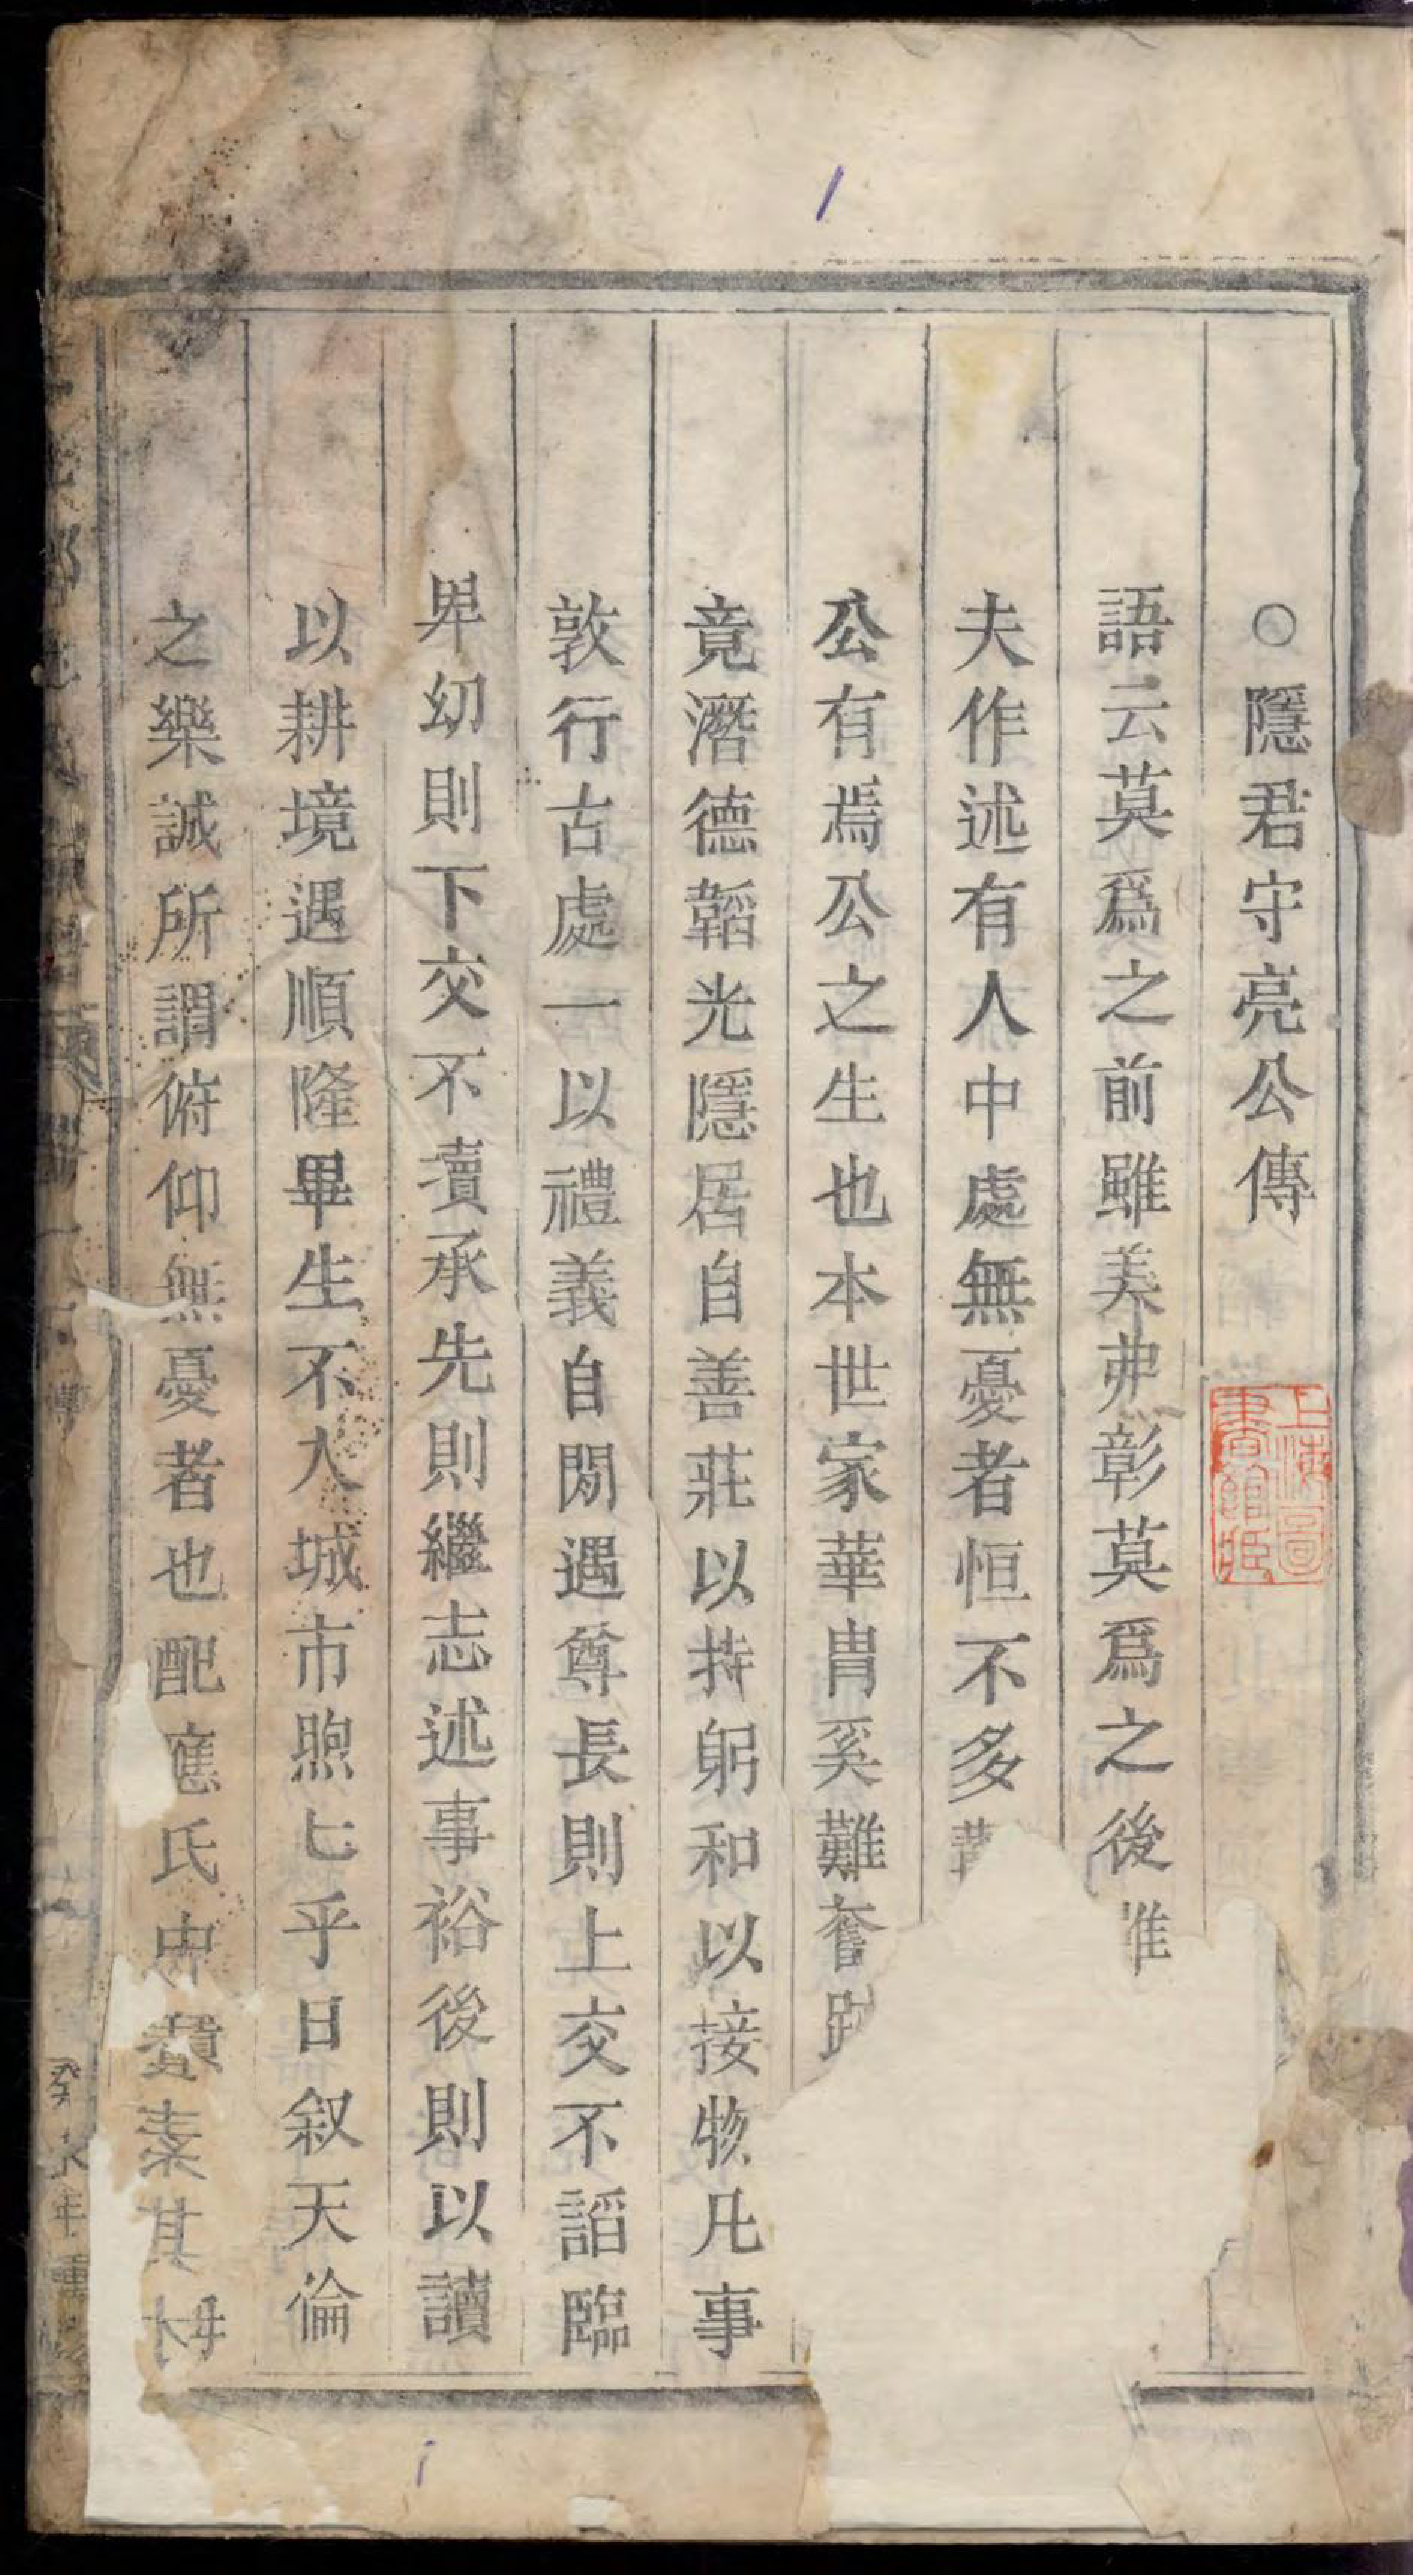 ○隱君守亮公傳
語云莫爲之前雖美弗彰莫爲之後雖
夫作述有人中處無憂者恒不多
公有焉公之生也本世家華胄奚難奮跡
竟濳德韜光隱居自善莊以持躬和以接物凡事
敦行古處一以禮義自閑遇尊長則上交不謟臨
卑幼則下交不瀆承先則繼志述事裕後則以讀
以耕境遇順隆畢生不入城市煦七乎日叙天倫
之樂誠所謂俯仰無憂者也配應氏中饋素其
上海圖書館藏
癸 年重